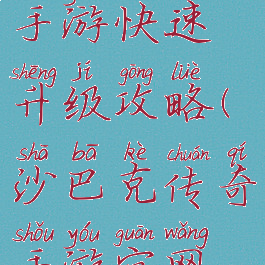 手游快速
shēng jí gōng lüè
升级攻略(
shā bā kè chuán qí
沙巴克传奇
shǒu yóu guān wǎng
手游官网